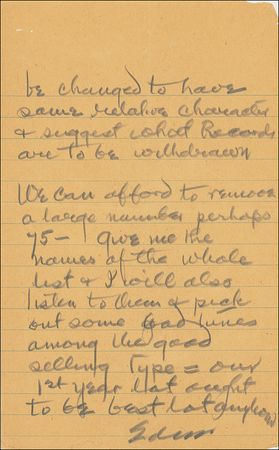 be changed to have
same relative character
& suggest what Records
are to be withdrawn
We can afford to remove
a large number perhaps
75— Give me the
names of the whole
list & I will also
listen to them & pick
out some bad tunes
among the good
selling type = our
1st year list ought
to be best lot anyhow